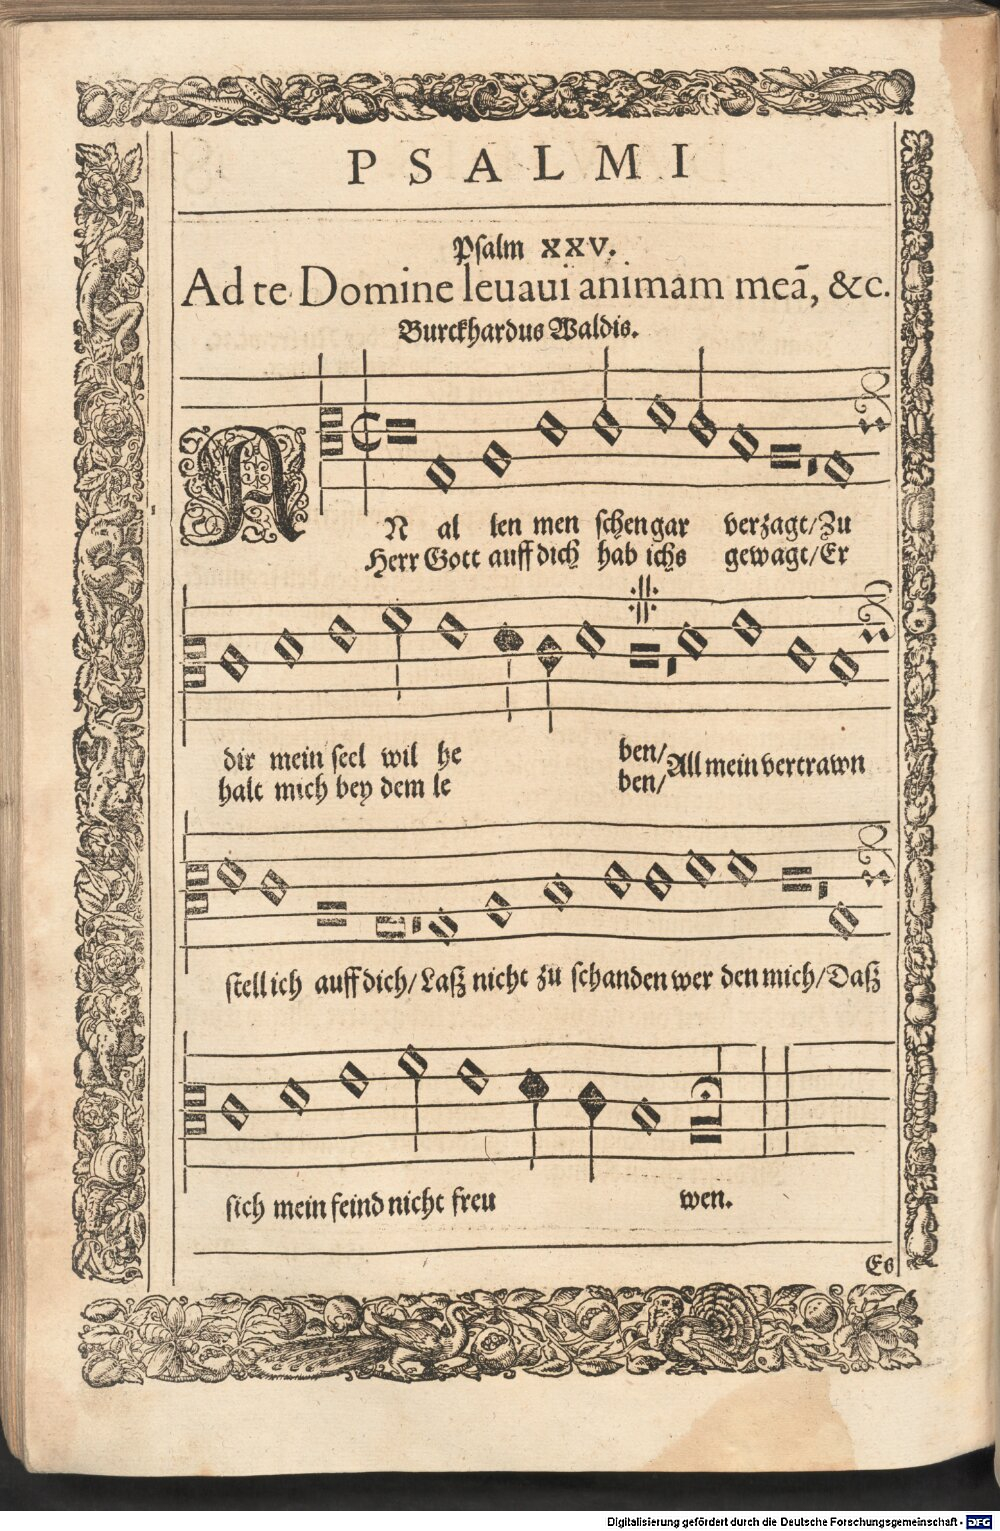 PSALMI
Psalm XXV.
Ad te Domine leuaui animam meā, &c.
Burckhardus Waldis.
AN al len men schen gar verzagt/Zu
Herr Gott auff dich hab ichs gewagt/Er
dir mein seel wil he ben/
halt mich bey dem le ben/
All mein vertrawn
stell ich auff dich/Laß nicht zu schanden wer den mich/Daß
sich mein feind nicht freu wen.
Es
Digitalisierung gefördert durch die Deutsche Forschungsgemeinschaft - DFG